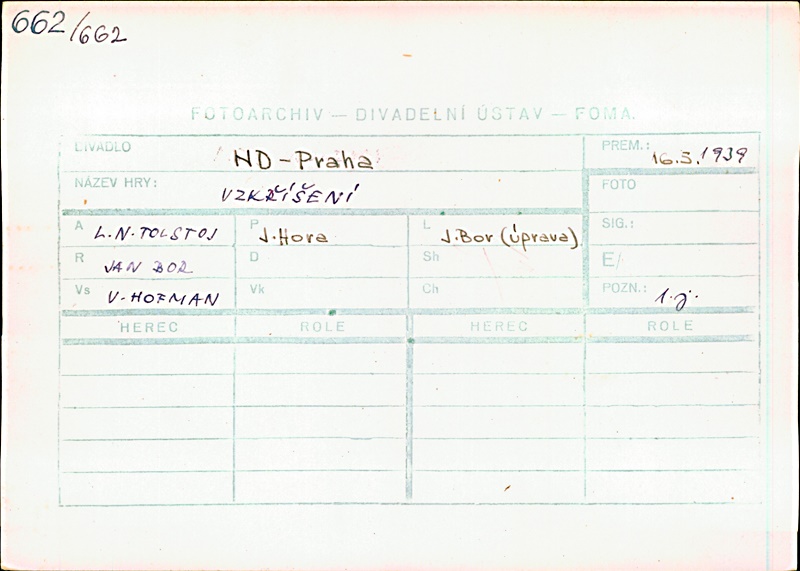 662/662
FOTOARCHIV — DIVADELNÍ ÚSTAV — FOMA
DIVADLO ND - Praha PREM.: 16.5.1939
NÁZEV HRY: VZKŘÍŠENÍ FOTO
A L.N.TOLSTOJ P J.Hora L J.Bor (úprava) SIG.:
R JAN BOR D Sh E/
Vs V. HOFMAN Vk Ch POZN.: 1.j.
HEREC ROLE HEREC ROLE